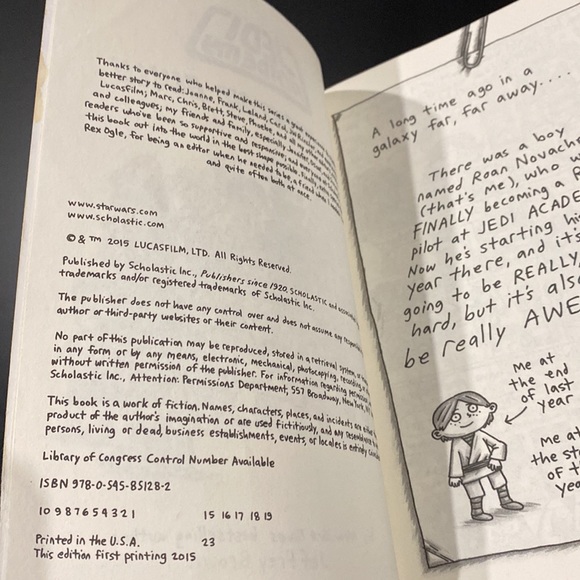 Thanks to everyone who helped make this series a great
better story to read: Joanne, Frank, Leland, Carol,
Lucasfilm; Marc, Chris, Brett, Steve, Phoebe, and all
and colleagues; my friends and family, especially Jennifer,
readers who've been so supportive and responsive, and
this book out into the world in the best shape possible. Finally,
Rex Ogle, for being an editor when he needed to be, a friend when
and quite often both at once.
www.starwars.com
www.scholastic.com
© & TM 2015 LUCASFILM, LTD. All Rights Reserved.
Published by Scholastic Inc., Publishers since 1920. SCHOLASTIC and associated
trademarks and/or registered trademarks of Scholastic Inc.
The publisher does not have any control over and does not assume any
author or third-party websites or their content.
No part of this publication may be reproduced, stored in a retrieval system, or
in any form or by any means, electronic, mechanical, photocopying, recording
without written permission of the publisher. For information regarding permission
Scholastic Inc., Attention: Permissions Department, 557 Broadway, New York,
This book is a work of fiction. Names, characters, places, and incidents are either
product of the author's imagination or are used fictitiously, and any resemblance
persons, living or dead, business establishments, events, or locales is entirely
Library of Congress Control Number Available
ISBN 978-0-545-85128-2
10 9 8 7 6 5 4 3 2 1 15 16 17 18 19
Printed in the U.S.A. 23
This edition first printing 2015
A long time ago in a
galaxy far, far away....
There was a boy
named Roan Novach
(that's me), who
FINALLY becoming a
pilot at JEDI ACADE
Now he's starting hi
year there, and it's
going to be REALLY,
hard, but it's also
be really AWE
Me at
the end
of last
year
Me at
the st
of t
yea